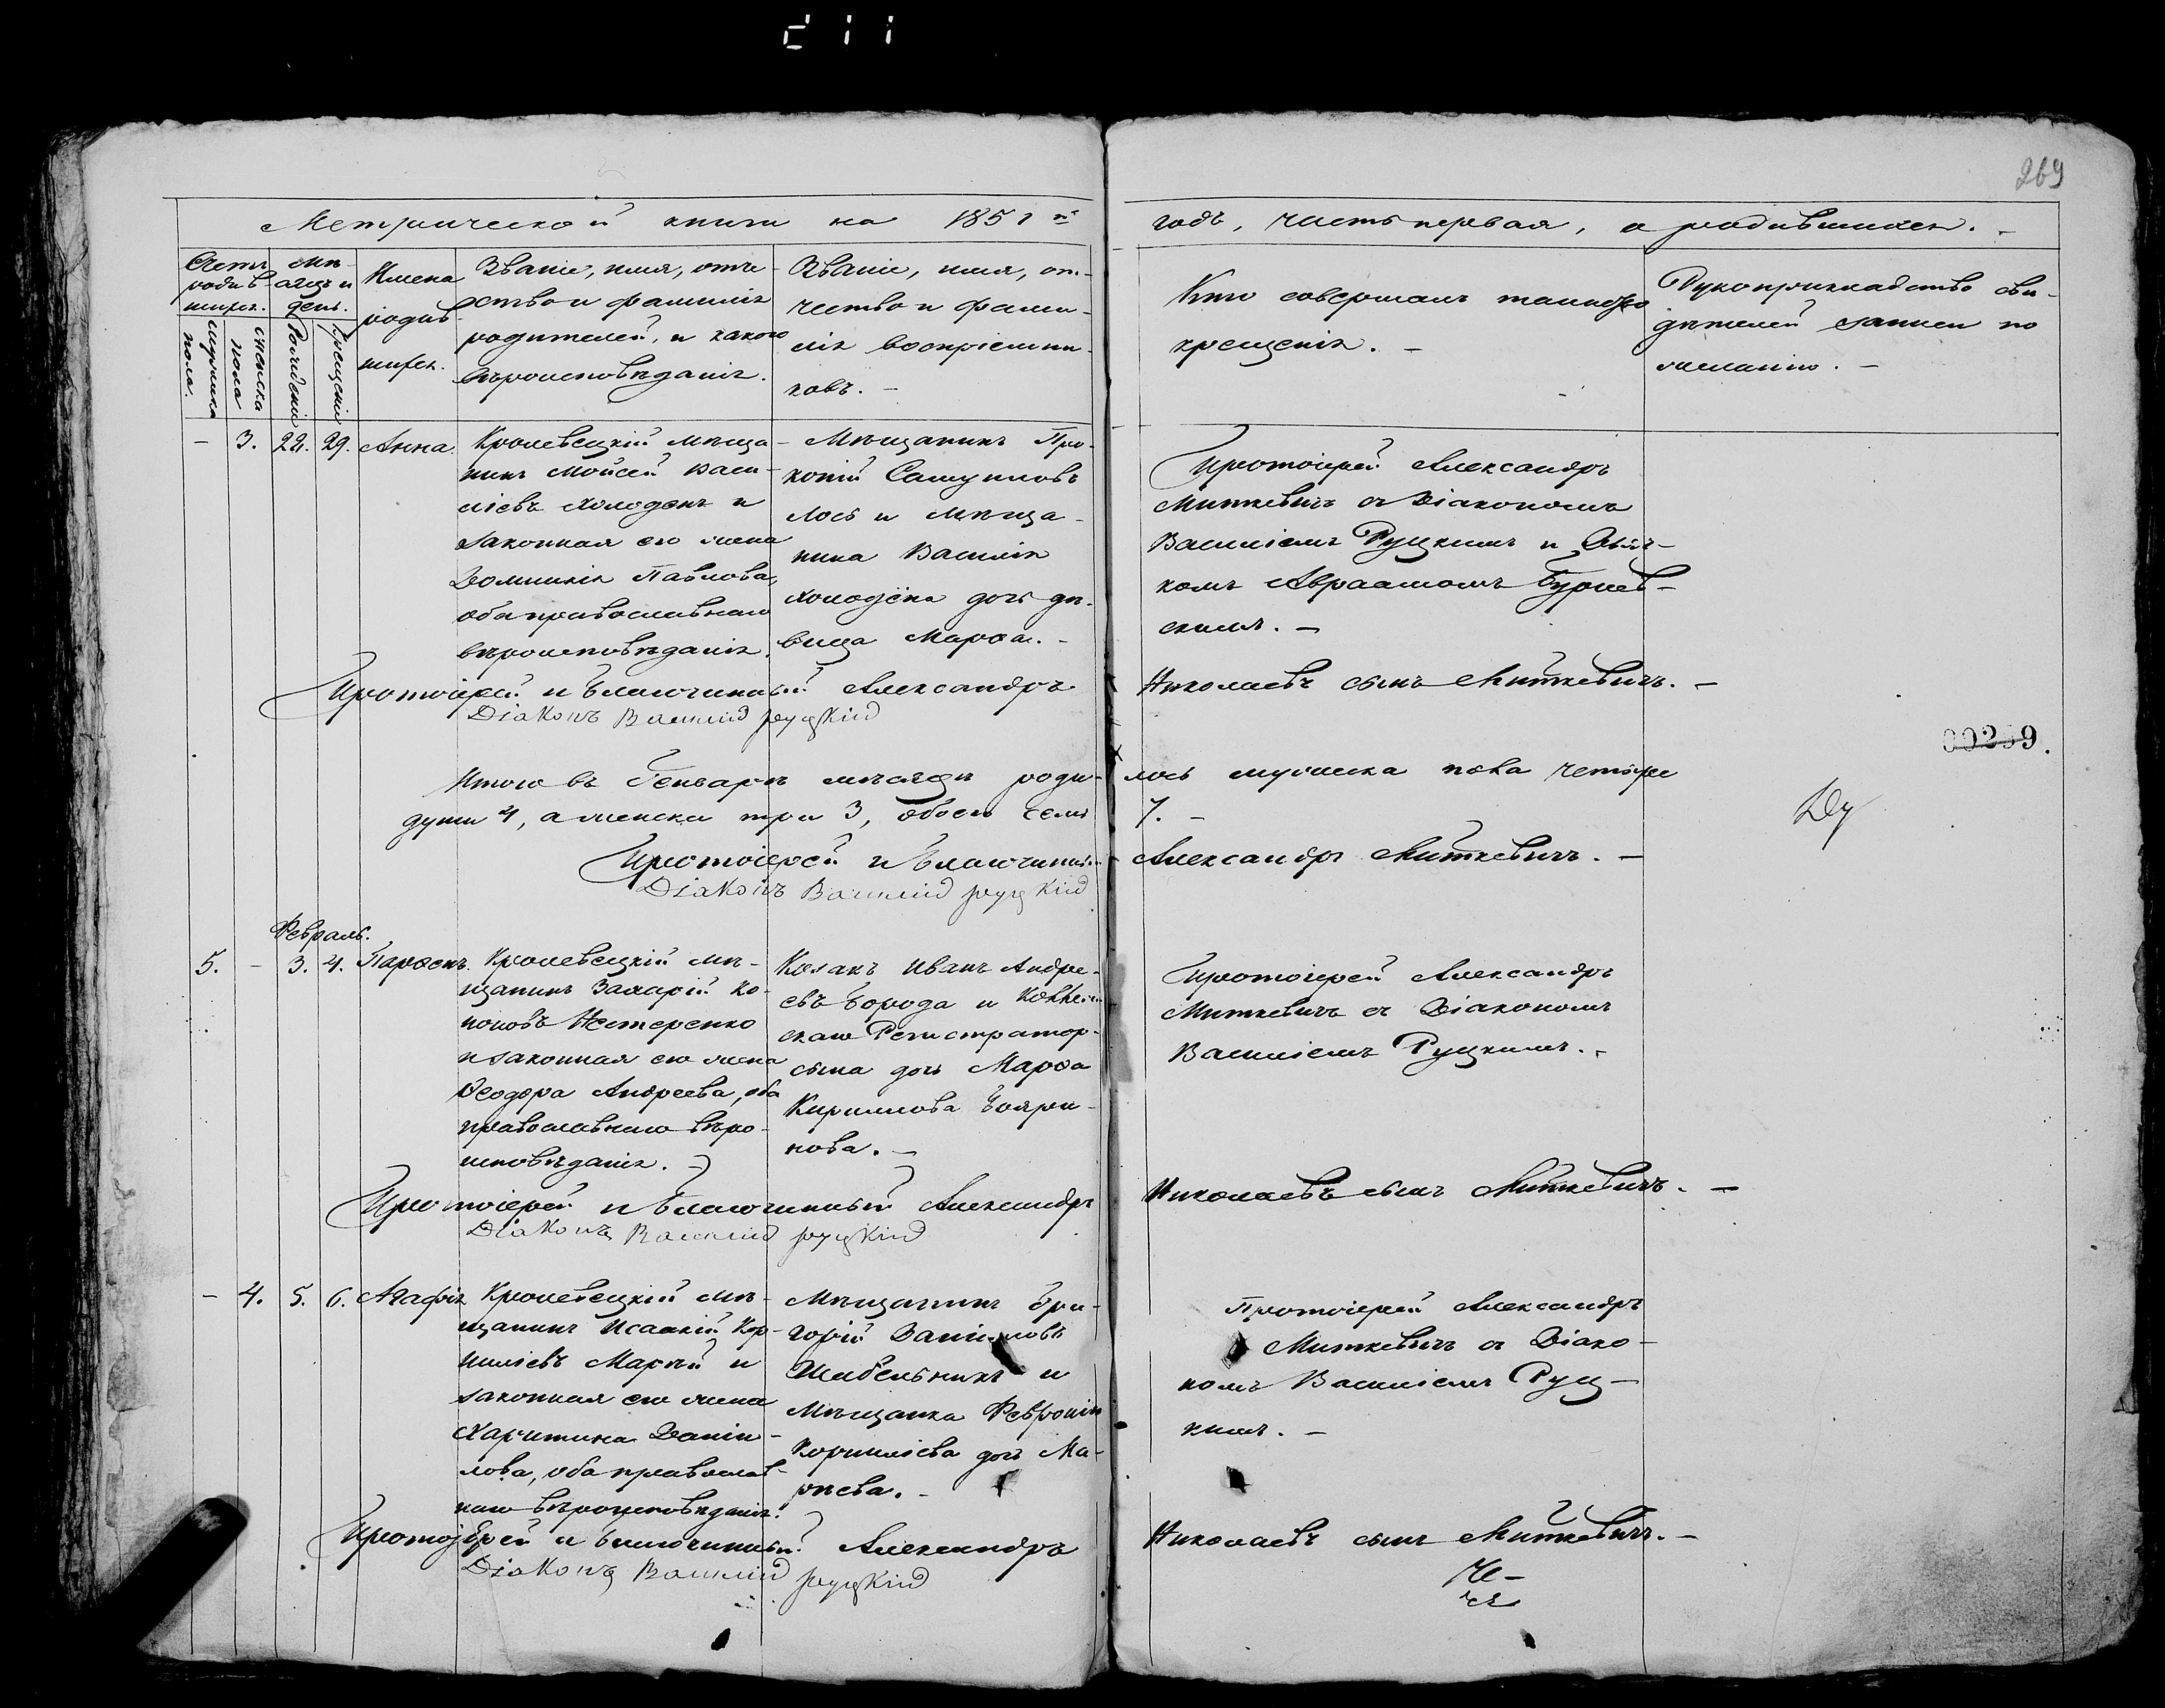 269
Метрической книги на 1851й годъ, часть первая, о родившихся.
Счетъ родив-
шихся.
мужеска пола.
женска пола
Мѣ-
сяцъ и
день.
Рожденія
Крещенія
Имена
родив-
шихся.
Званіе, имя, отче-
ство и фамилія
родителей, и какого
вѣроисповѣданія.
Званіе, имя, от-
чество и фами-
лія воспріемни-
ковъ. –
Кто совершалъ таинство
крещенія. –
Рукоприкладство сви-
дѣтелей записи по
желанію. –
– 3. 22. 29. Анна.
Кролевецкій мѣща-
нинъ Мойсей Васи-
ліевъ Холоденъ и
законная его жена
Домникія Павлова,
оба православнаго
вѣроисповѣданія.
Мѣщанинъ Про-
копій Самуиловъ
Лось и мѣща-
нина Василія
Холодёна дочь дѣ-
вица Марѳа. –
Протоіерей Александръ
Миткевичъ съ Діакономъ
Василіемъ Руцкимъ и Дьяч-
комъ Авраамомъ Бурчев-
скимъ. –
Протоіерей и Благочинный Александръ Николаевъ сынъ Миткевичъ. –
Діаконъ Василій Руцкій
00259.
Итого въ Генварѣ мѣсяцѣ роди-лось мужеска пола четыре
души 4, а женска три 3, обоего семь 7. –
Протоіерей и Благочинный Александръ Миткевичъ. –
Діаконъ Василій Руцкій
Февраль.
5. – 3. 4. Парѳенъ.
Кролевецкій мѣ-
щанинъ Захарій Ко-
ноновъ Нестеренко
и законная его жена
Ѳеодора Андреева, оба
православнаго вѣро-
исповѣданія.
Козакъ Иванъ Андре-
евъ Борода и Коллеж-
скаго Регистратор-
сына дочь Марѳа
Кириллова Бояри-
нова. –
Протоіерей Александръ
Миткевичъ съ Діакономъ
Василіемъ Руцкимъ. –
Протоіерей и Благочинный Александръ Николаевъ сынъ Миткевичъ. –
Діаконъ Василій Руцкій
– 4. 5. 6. Агафія
Кролевецкій мѣ-
щанинъ Исаакій Кор-
ниліевъ Марчій и
законная его жена
Харитина Даніи-
лова, оба православ-
наго вѣроисповѣданія.
Мѣщанинъ Гри-
горій Даніиловъ
Шабельникъ и
мѣщанка Февронія
Корниліева дочь Ма-
рчева. –
Протоіерей Александръ
Миткевичъ съ Діако-
номъ Василіемъ Руц-
кимъ. –
Протоіерей и Благочинный Александръ Николаевъ сынъ Миткевичъ. –
Діаконъ Василій Руцкій